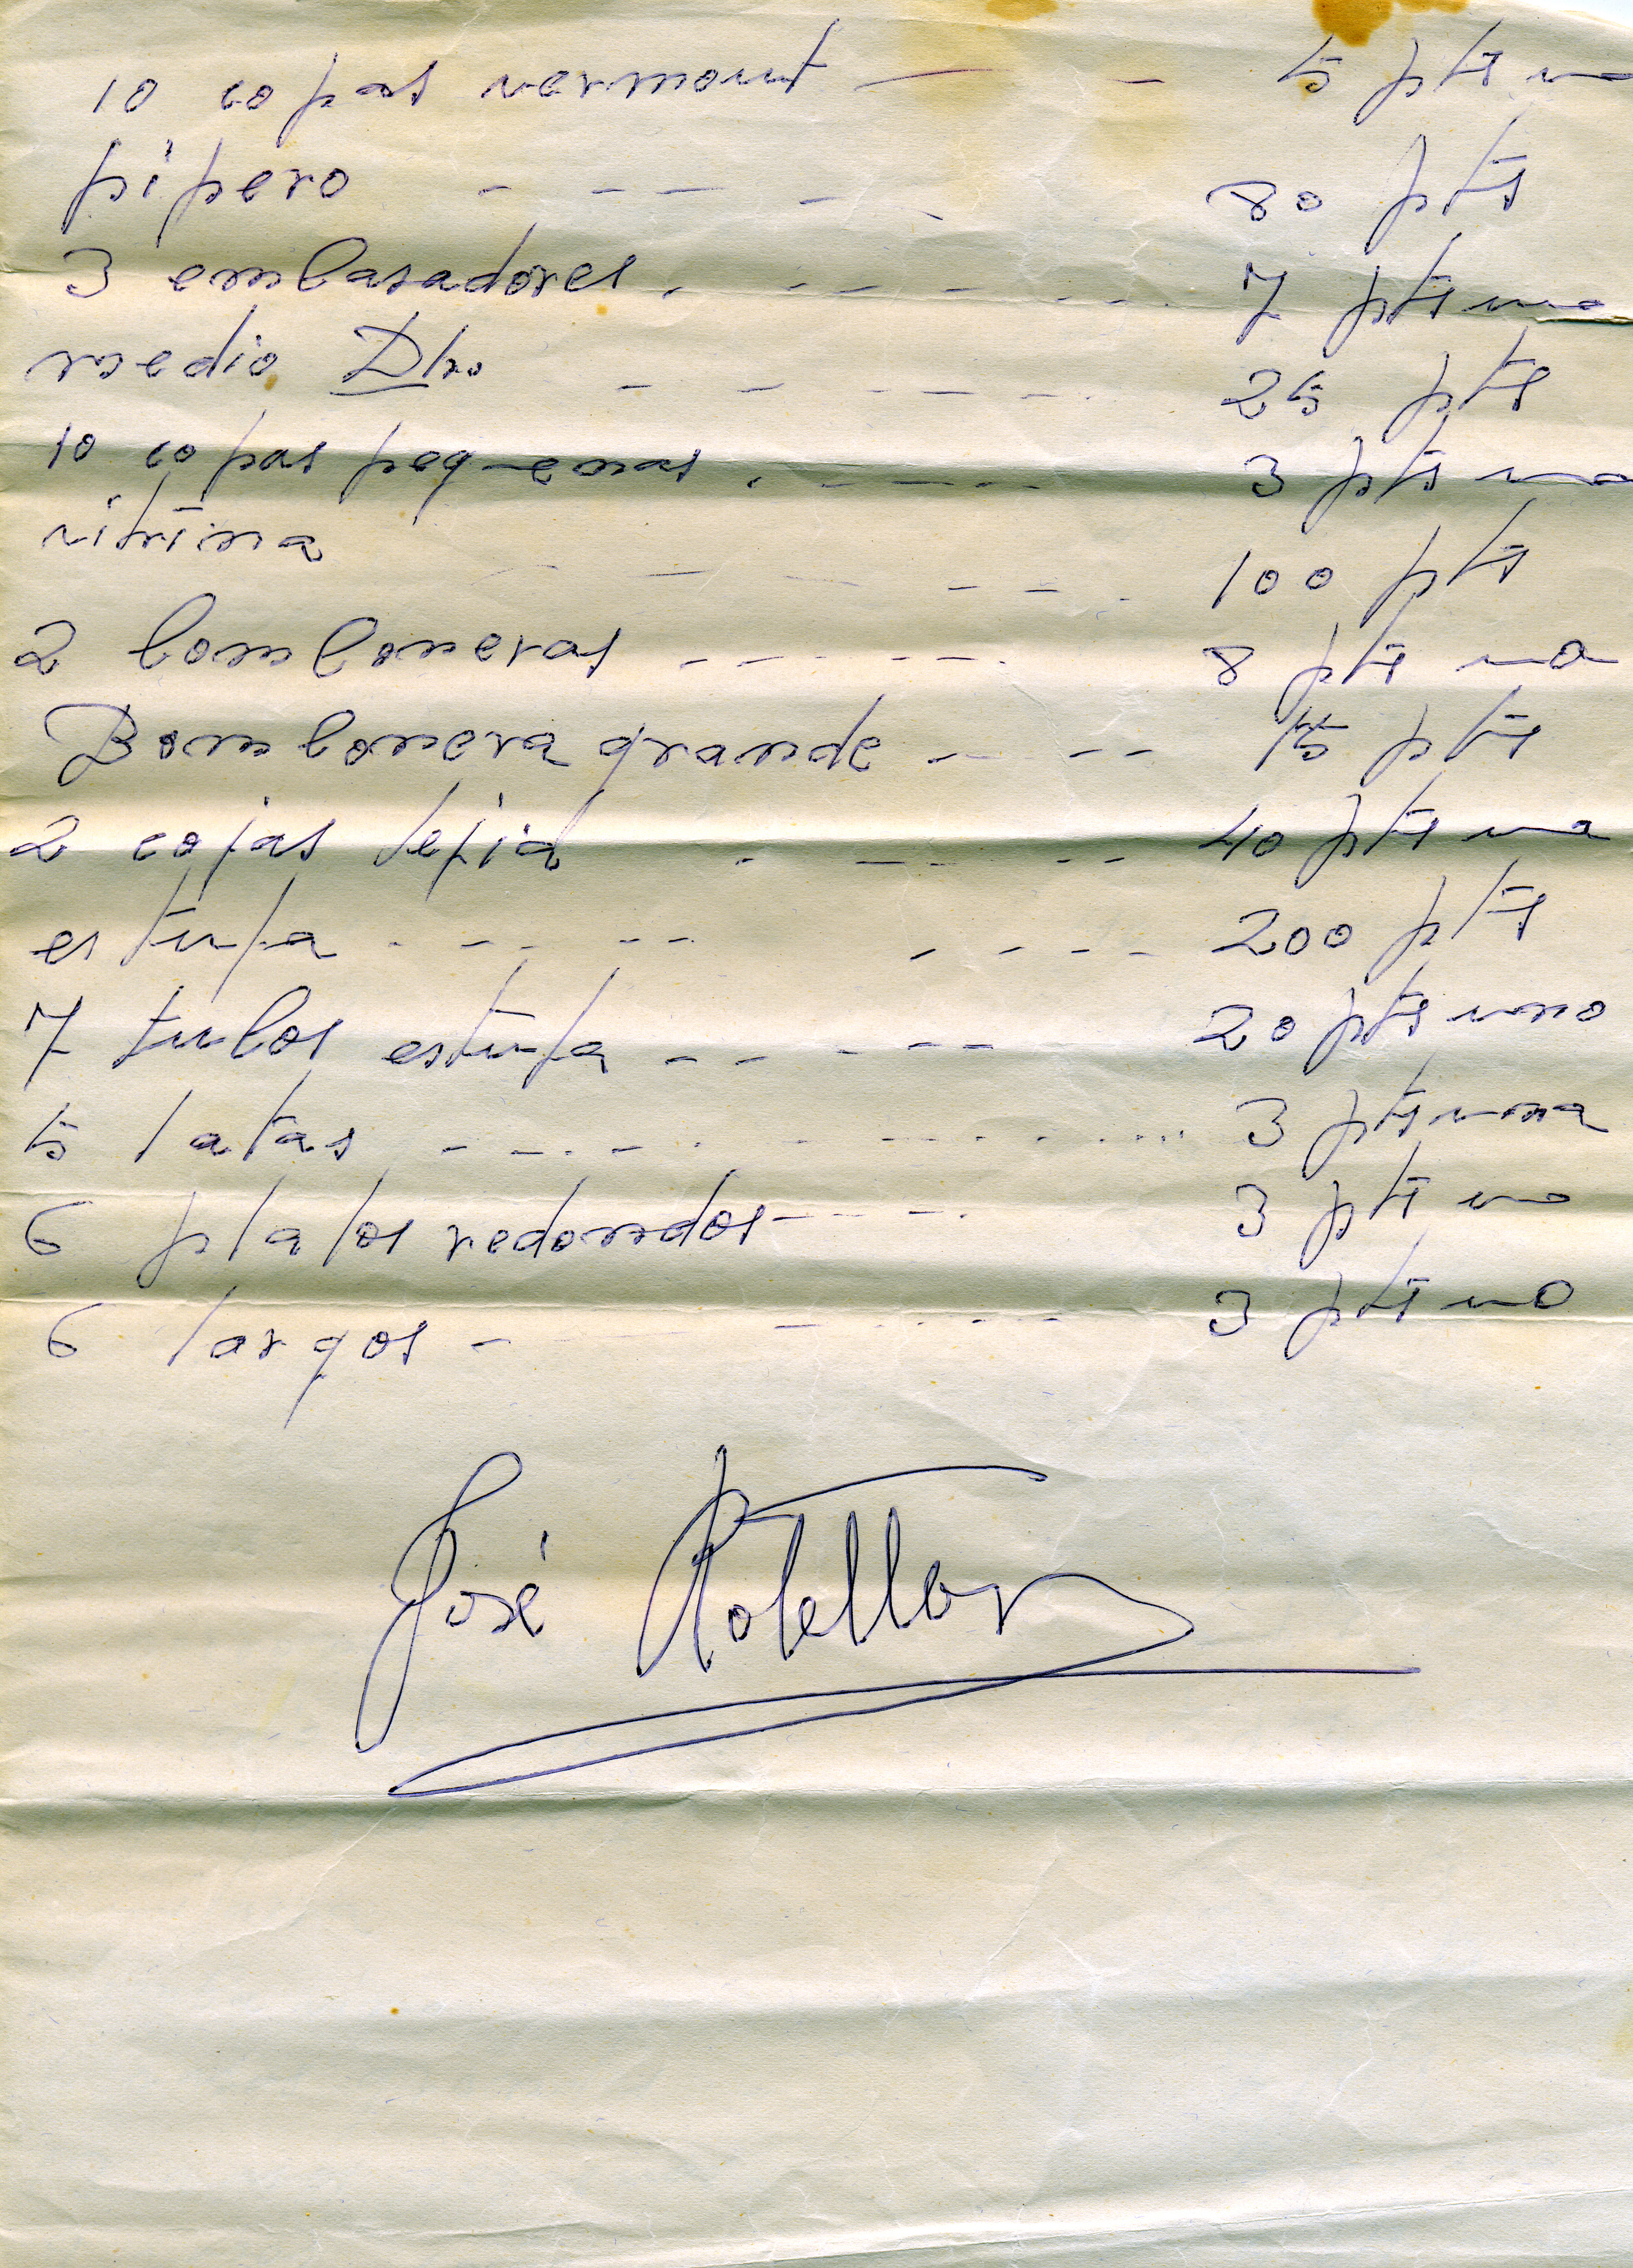 10 copas vermout — - 5 pts uno
pipero - - - - - 80 pts
3 embasadores . - - - - - ... 7 pts uno
medio Dbo. - - - - - - 25 pts
10 copas pequenas . - - - - 3 pts una
vitrina - - - - - . 100 pts
2 bomboneras - - - - - - . 8 pts una
Bombonera grande - - - - 15 pts
2 cajas lejia . - - - - 40 pts una
estufa - - - - - . - - - - 200 pts
7 tubos estufa - - - - - 20 pts uno
5 latas - - - . - . - - - - ... 3 pts una
6 platos redondos - - - - . 3 pts uno
6 largos - - - - - - 3 pts uno
José Rotellar